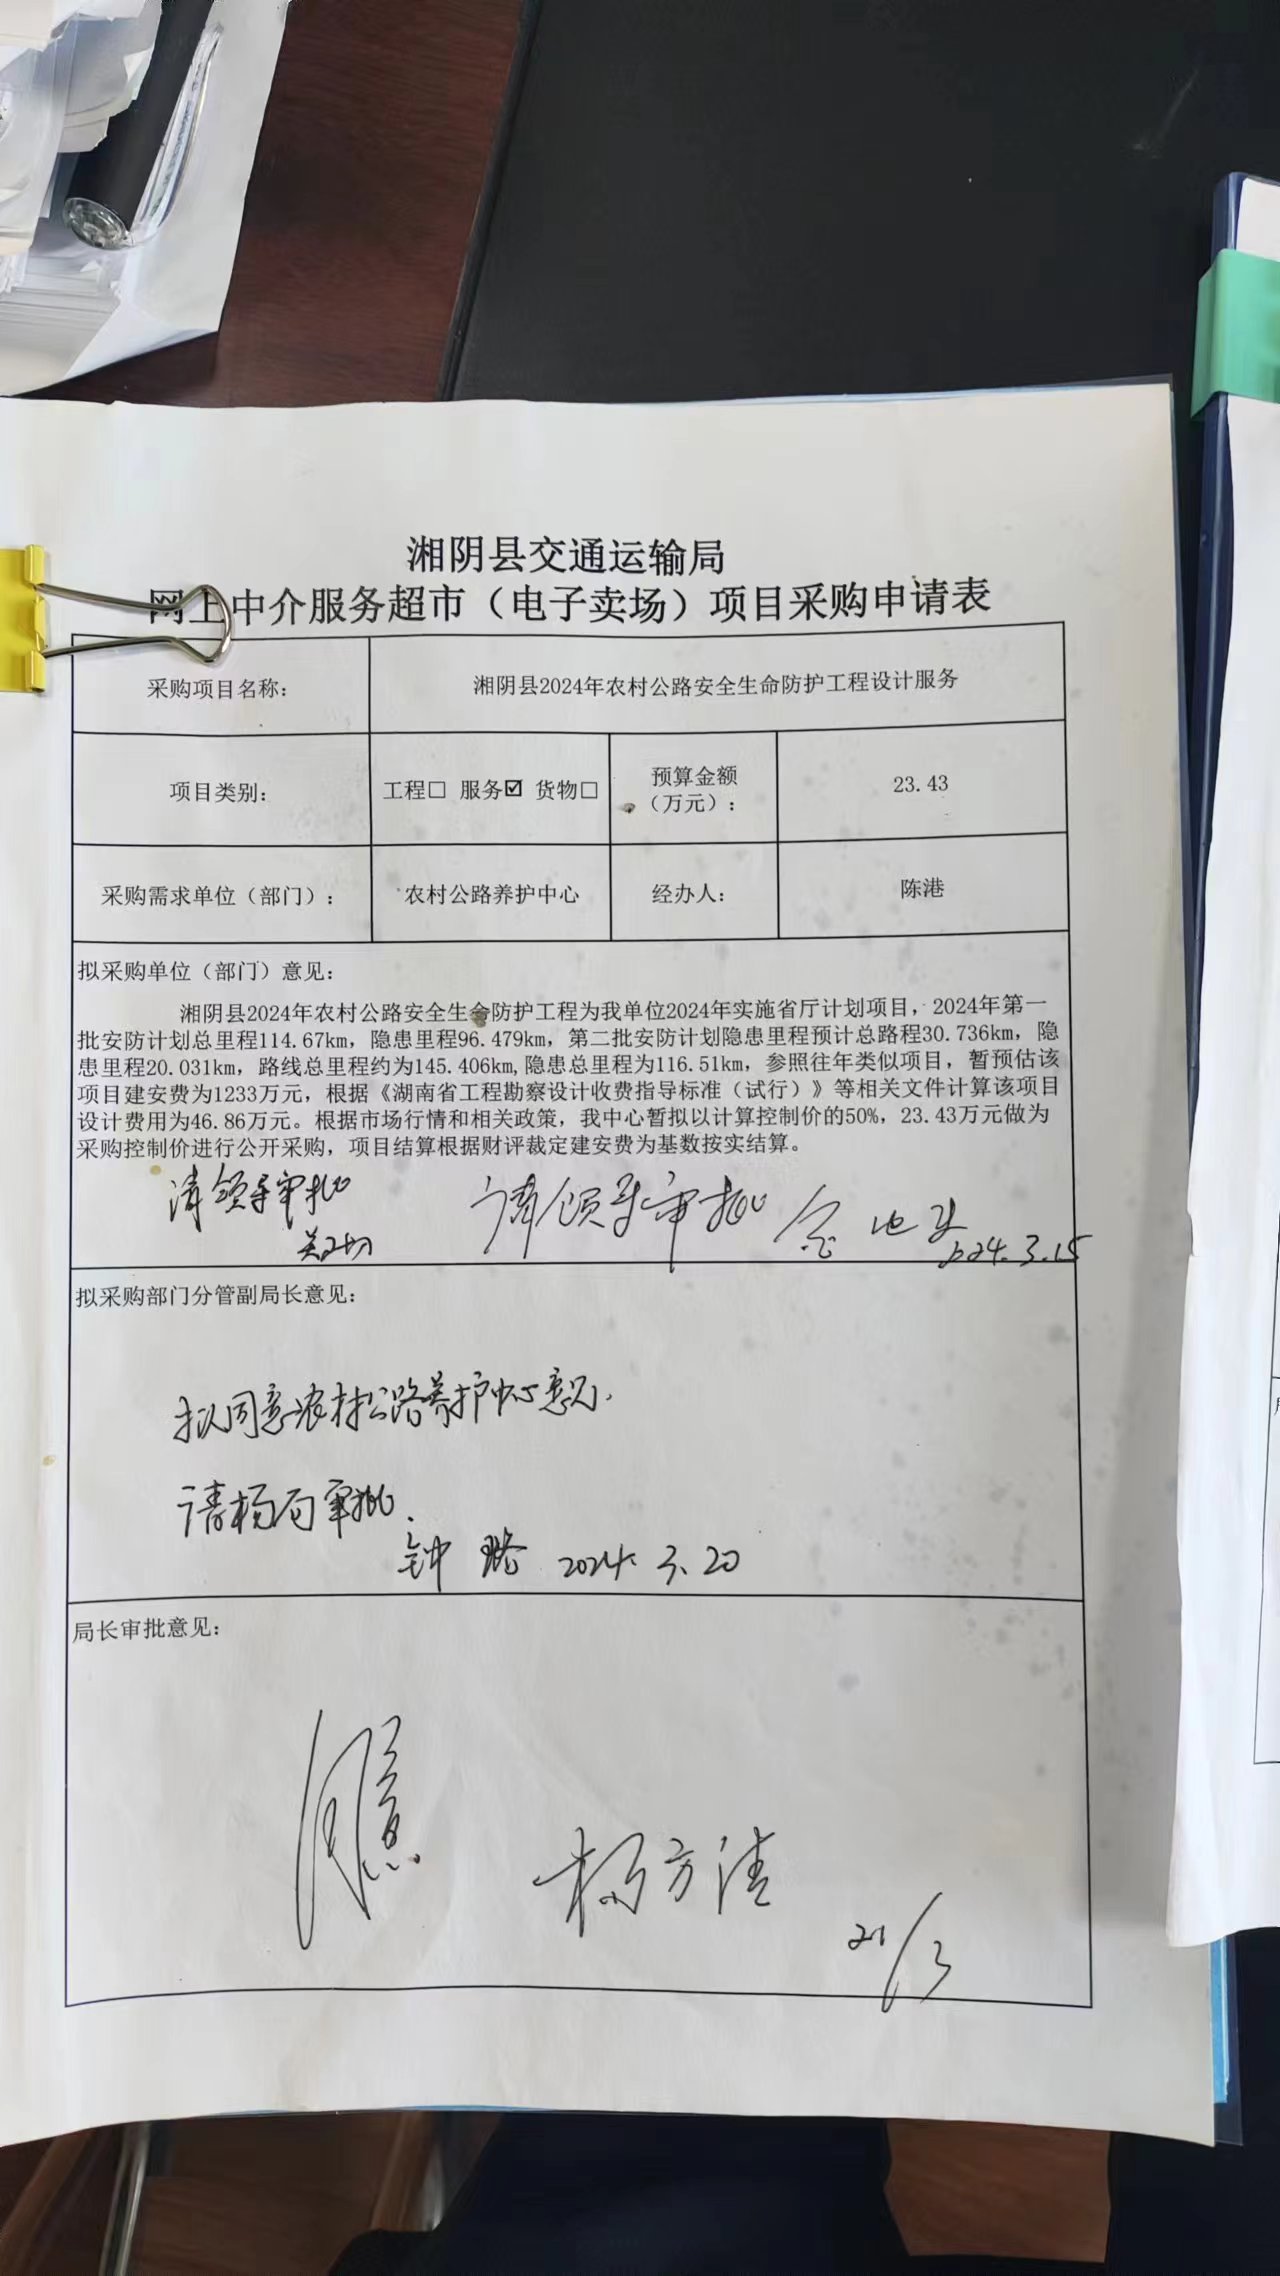 湘阴县交通运输局
网上中介服务超市（电子卖场）项目采购申请表
采购项目名称： 湘阴县2024年农村公路安全生命防护工程设计服务
项目类别： 工程□ 服务☑ 货物□ 预算金额（万元）： 23.43
采购需求单位（部门）： 农村公路养护中心 经办人： 陈港
拟采购单位（部门）意见：
湘阴县2024年农村公路安全生命防护工程为我单位2024年实施省厅计划项目，2024年第一
批安防计划总里程114.67km，隐患里程96.479km，第二批安防计划隐患里程预计总路程30.736km，隐
患里程20.031km，路线总里程约为145.406km,隐患总里程为116.51km，参照往年类似项目，暂预估该
项目建安费为1233万元，根据《湖南省工程勘察设计收费指导标准（试行）》等相关文件计算该项目
设计费用为46.86万元。根据市场行情和相关政策，我中心暂拟以计算控制价的50%，23.43万元做为
采购控制价进行公开采购，项目结算根据财评裁定建安费为基数按实结算。
请领导审批 请领导审批
2024.3.15
拟采购部门分管副局长意见：
拟同意农村公路养护中心意见.
请杨局审批.
钟 2024.3.20
局长审批意见：
杨方清
21/3